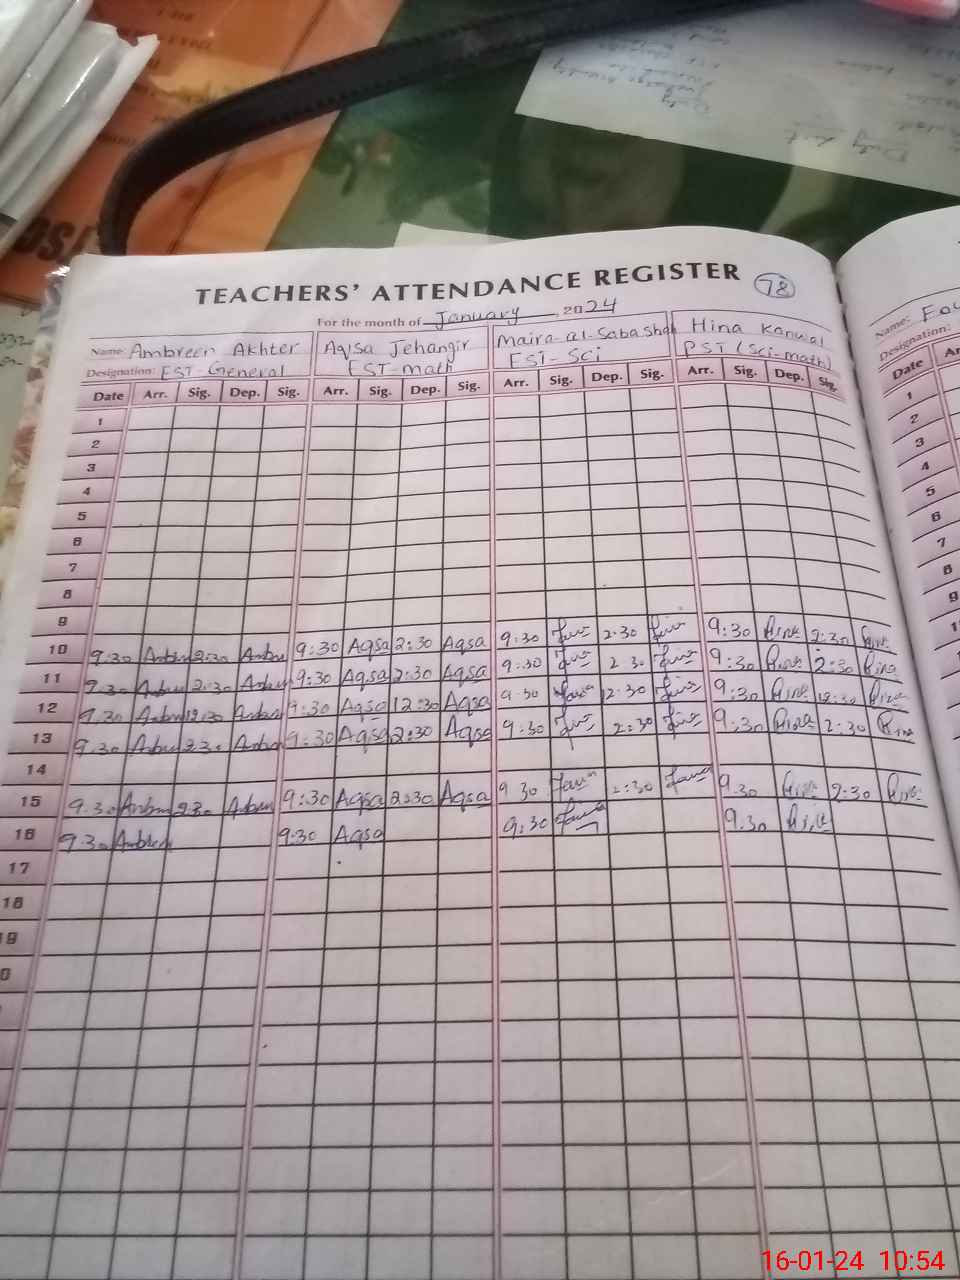 TEACHERS' ATTENDANCE REGISTER 78
For the month of January, 2024
Name: Ambreen Akhter Aqsa Jehangir Maira-al-Sabashah Hina Kanwal
Designation: EST-General EST-math EST-Sci PST (Sci-math)
Date Arr. Sig. Dep. Sig. Arr. Sig. Dep. Sig. Arr. Sig. Dep. Sig. Arr. Sig. Dep. Sig.
1
2
3
4
5
6
7
8
9
10 9:30 2:30 9:30 Aqsa 2:30 Aqsa 9:30 2:30 9:30 Hina 2:30 Hina
11 9.30 2.30 9:30 Aqsa 2:30 Aqsa 9:30 2:30 9:30 Hina 2:30 Hina
12 9.30 12:30 9:30 Aqsa 12:30 Aqsa 9:30 12:30 9:30 Hina 12:30 Hina
13 9.30 2.30 9:30 Aqsa 2:30 Aqsa 9:30 2:30 9:30 Hina 2:30 Hina
14
15 9.30 2:30 9:30 Aqsa 2:30 Aqsa 9:30 2:30 9.30 Hina 2:30 Hina
16 9.30 Ambreen 9:30 Aqsa 9:30 9.30 Hina
17
18
19
Name:
Designation:
Date
1
2
3
4
5
6
7
8
9
16-01-24 10:54